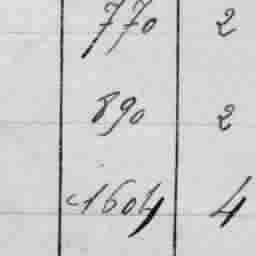 770 2
890 2
1604 4